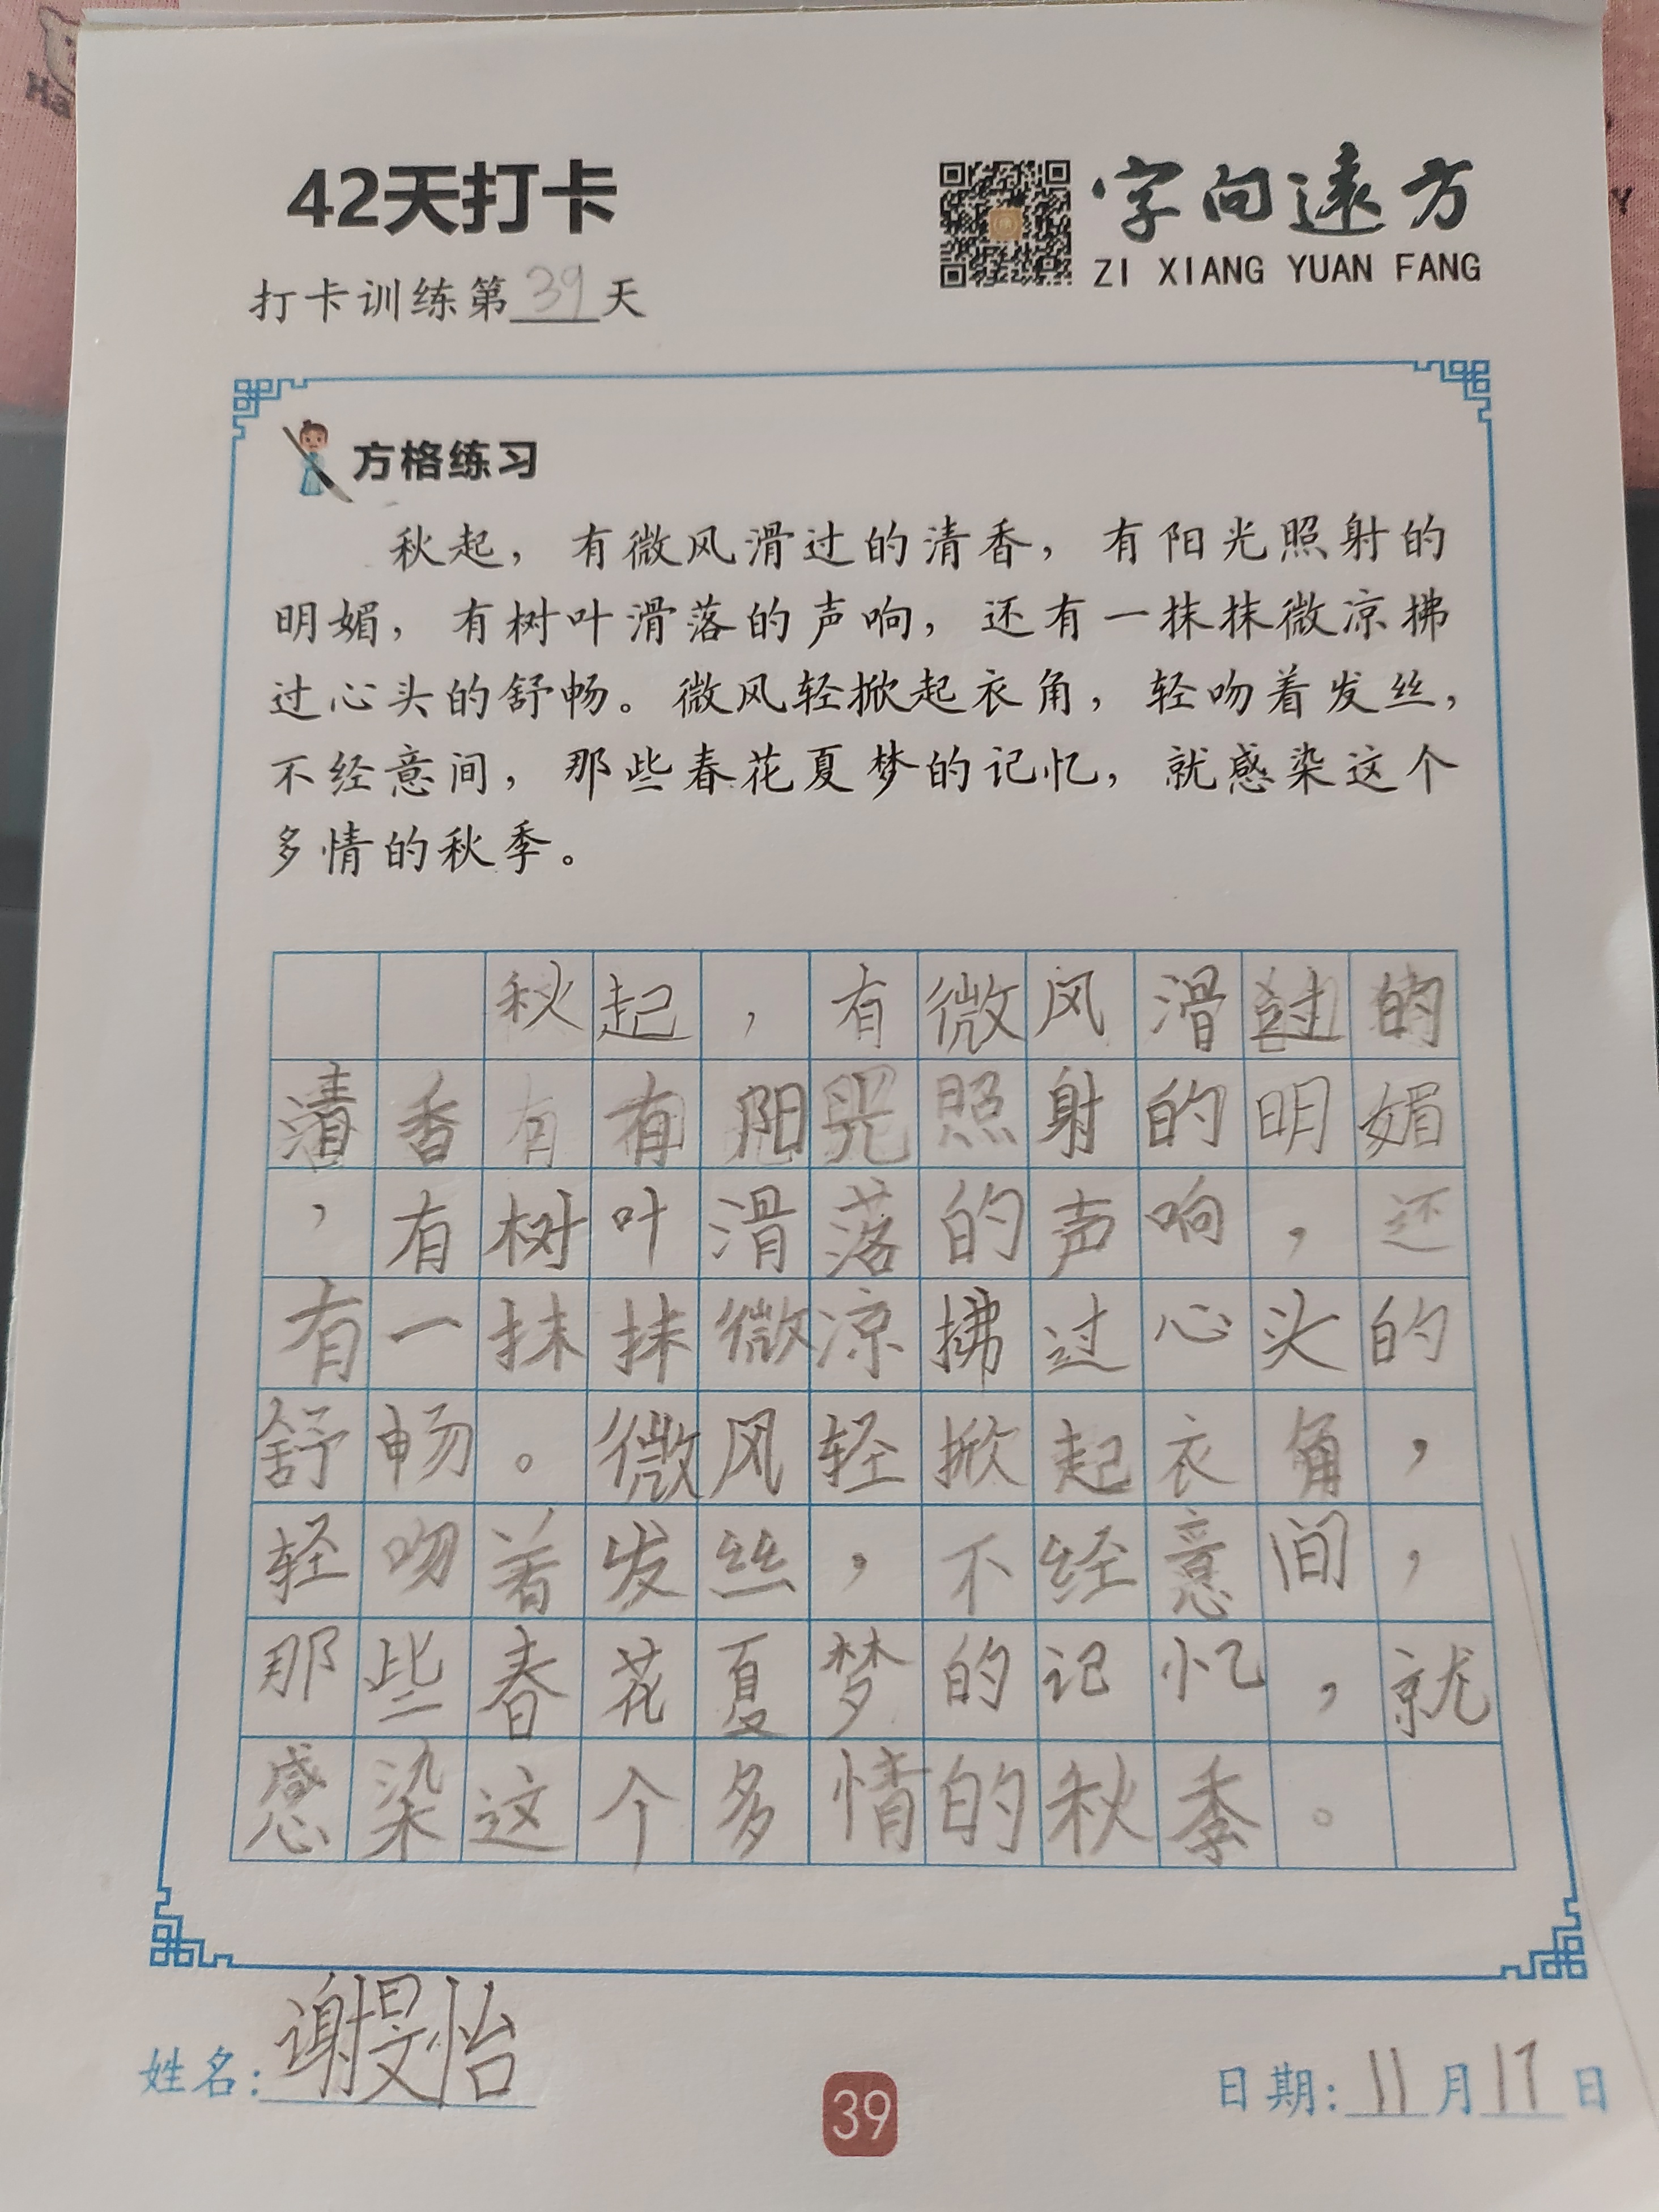 42天打卡
字向远方
ZI XIANG YUAN FANG
打卡训练第39天
方格练习
秋起，有微风滑过的清香，有阳光照射的
明媚，有树叶滑落的声响，还有一抹抹微凉拂
过心头的舒畅。微风轻掀起衣角，轻吻着发丝，
不经意间，那些春花夏梦的记忆，就感染这个
多情的秋季。
秋起，有微风滑过的
清香有有阳光照射的明媚
，有树叶滑落的声响，还
有一抹抹微凉拂过心头的
舒畅。微风轻掀起衣角，
轻吻着发丝，不经意间，
那些春花夏梦的记忆，就
感染这个多情的秋季。
姓名：谢旻怡
39
日期：11月17日